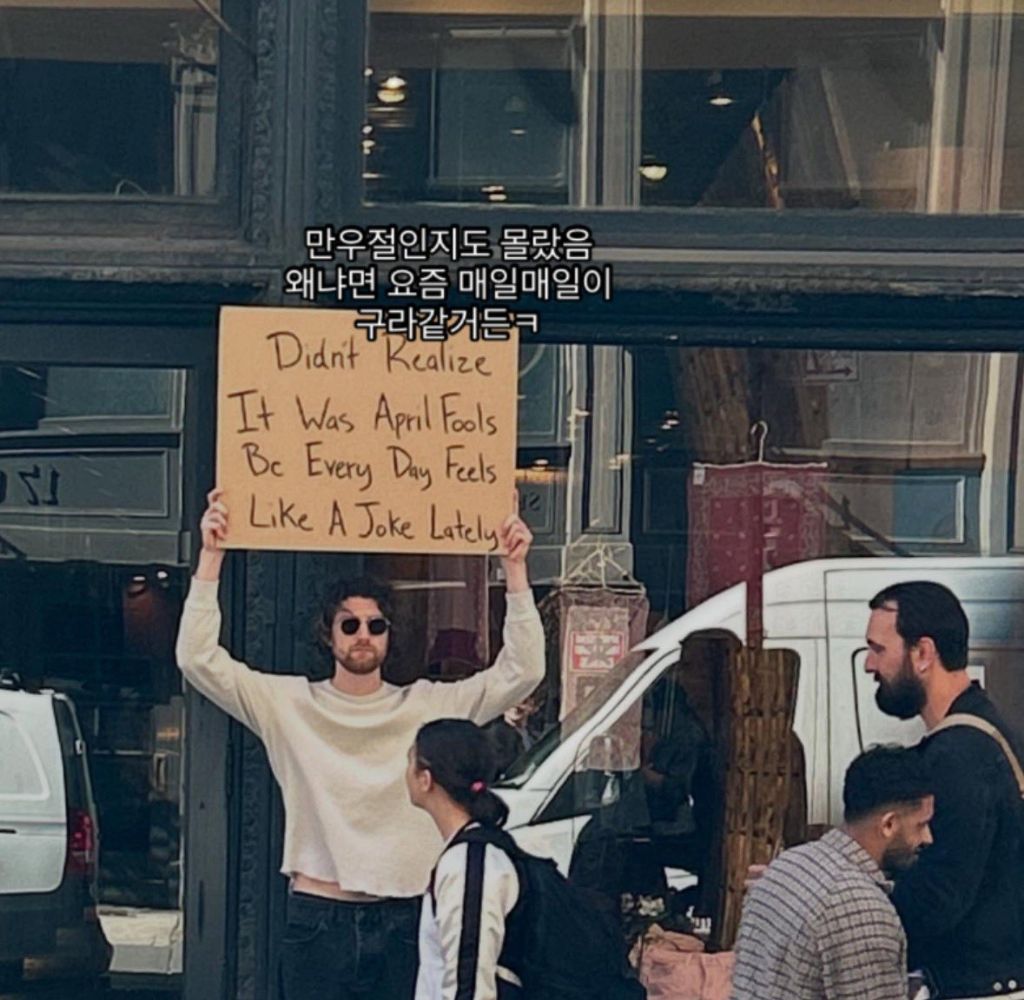 만우절인지도 몰랐음
왜냐면 요즘 매일매일이
구라같거든ㅋ
Didn't Realize
It Was April Fools
Bc Every Day Feels
Like A Joke Lately